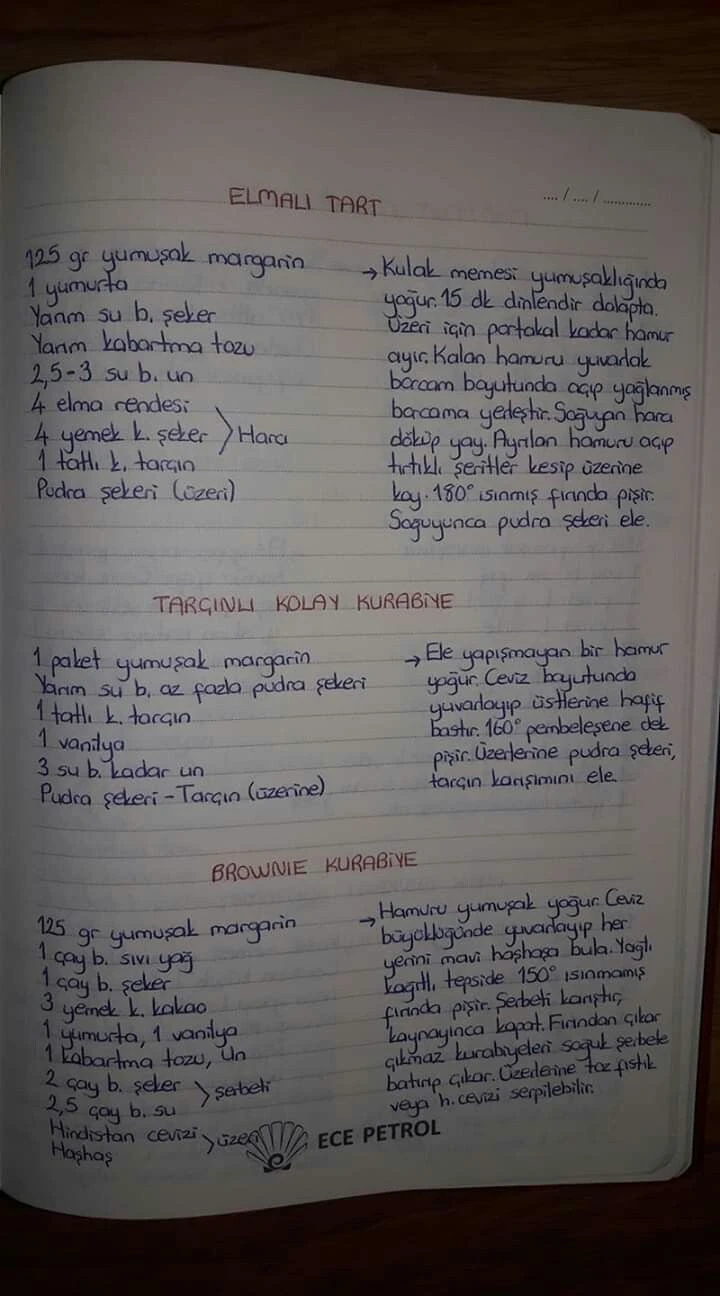 .... / .... / ............
ELMALI TART
125 gr yumuşak margarin
1 yumurta
Yarım su b. şeker
Yarım kabartma tozu
2,5-3 su b. un
4 elma rendesi
4 yemek k. şeker > Harcı
1 tatlı k. tarçın
Pudra şekeri (üzeri)
→ Kulak memesi yumuşaklığında
yoğur. 15 dk dinlendir dolapta.
Üzeri için portakal kadar hamur
ayır. Kalan hamuru yuvarlak
borcam boyutunda açıp yağlanmış
borcama yerleştir. Soğuyan harcı
döküp yay. Ayrılan hamuru açıp
tırtıklı şeritler kesip üzerine
koy. 180° ısınmış fırında pişir.
Soğuyunca pudra şekeri ele.
TARÇINLI KOLAY KURABİYE
1 paket yumuşak margarin
Yarım su b. az fazla pudra şekeri
1 tatlı k. tarçın
1 vanilya
3 su b. kadar un
Pudra şekeri - Tarçın (üzerine)
→ Ele yapışmayan bir hamur
yoğur. Ceviz boyutunda
yuvarlayıp üstlerine hafif
bastır. 160° pembeleşene dek
pişir. Üzerlerine pudra şekeri,
tarçın karışımını ele.
BROWNIE KURABİYE
125 gr yumuşak margarin
1 çay b. sıvı yağ
1 çay b. şeker
3 yemek k. kakao
1 yumurta, 1 vanilya
1 kabartma tozu, un
2 çay b. şeker > şerbeti
2,5 çay b. su
Hindistan cevizi > üzeri
Haşhaş
→ Hamuru yumuşak yoğur. Ceviz
büyüklüğünde yuvarlayıp her
yerini mavi haşhaşa bula. Yağlı
kağıtlı tepside 150° ısınmamış
fırında pişir. Şerbeti karıştır,
kaynayınca kapat. Fırından çıkar
çıkmaz kurabiyeleri soğuk şerbete
batırıp çıkar. Üzerlerine toz fıstık
veya h. cevizi serpilebilir.
ECE PETROL